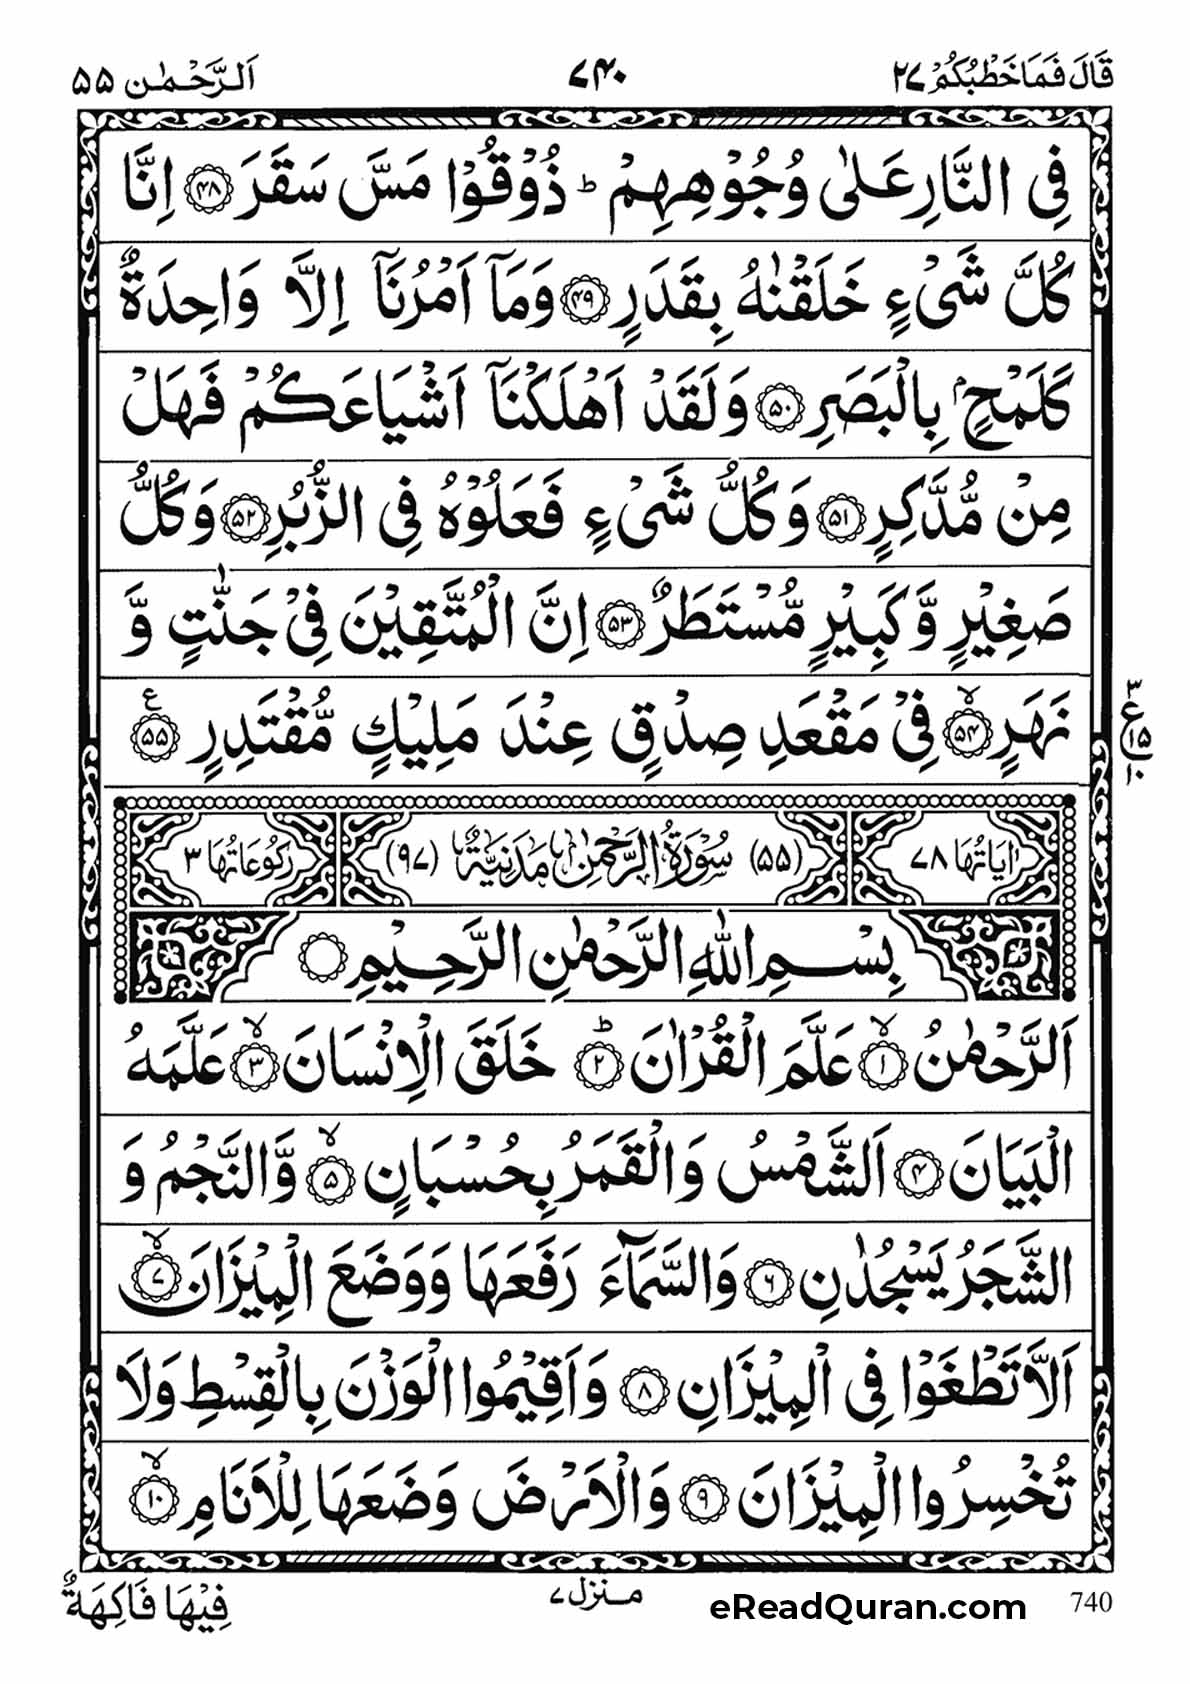 قَالَ فَمَا خَطْبُكُمْ ۲۷
۷۴۰
اَلرَّحْمٰن ۵۵
فِي النَّارِ عَلٰى وُجُوْهِهِمْ ؕ ذُوْقُوْا مَسَّ سَقَرَ ﴿۴۸﴾ اِنَّا
كُلَّ شَيْءٍ خَلَقْنٰهُ بِقَدَرٍ ﴿۴۹﴾ وَمَاۤ اَمْرُنَاۤ اِلَّا وَاحِدَةٌ
كَلَمْحٍۭ بِالْبَصَرِ ﴿۵۰﴾ وَلَقَدْ اَهْلَكْنَاۤ اَشْيَاعَكُمْ فَهَلْ
مِنْ مُّدَّكِرٍ ﴿۵۱﴾ وَكُلُّ شَيْءٍ فَعَلُوْهُ فِي الزُّبُرِ ﴿۵۲﴾ وَكُلُّ
صَغِيْرٍ وَّكَبِيْرٍ مُّسْتَطَرٌ ﴿۵۳﴾ اِنَّ الْمُتَّقِيْنَ فِيْ جَنّٰتٍ وَّ
نَهَرٍ ﴿۵۴﴾ۙ فِيْ مَقْعَدِ صِدْقٍ عِنْدَ مَلِيْكٍ مُّقْتَدِرٍ ﴿۵۵﴾ ع
۳
ع
۱۵
۱۰
اٰيَاتُهَا ۷۸
(۵۵) سُوْرَةُ الرَّحْمٰنِ مَدَنِيَّةٌ (۹۷)
رُكُوْعَاتُهَا ۳
بِسْمِ اللهِ الرَّحْمٰنِ الرَّحِيْمِ
اَلرَّحْمٰنُ ﴿۱﴾ۙ عَلَّمَ الْقُرْاٰنَ ﴿۲﴾ؕ خَلَقَ الْاِنْسَانَ ﴿۳﴾ۙ عَلَّمَهُ
الْبَيَانَ ﴿۴﴾ اَلشَّمْسُ وَالْقَمَرُ بِحُسْبَانٍ ﴿۵﴾ۙ وَّالنَّجْمُ وَ
الشَّجَرُ يَسْجُدٰنِ ﴿۶﴾ وَالسَّمَآءَ رَفَعَهَا وَوَضَعَ الْمِيْزَانَ ﴿۷﴾ۙ
اَلَّا تَطْغَوْا فِي الْمِيْزَانِ ﴿۸﴾ وَاَقِيْمُوا الْوَزْنَ بِالْقِسْطِ وَلَا
تُخْسِرُوا الْمِيْزَانَ ﴿۹﴾ وَالْاَرْضَ وَضَعَهَا لِلْاَنَامِ ﴿۱۰﴾ۙ
فِيْهَا فَاكِهَةٌ
منزل ۷
eReadQuran.com
740